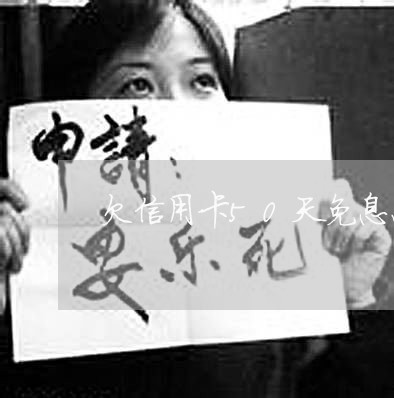 申請:
欠信用卡50天免息
要乐死